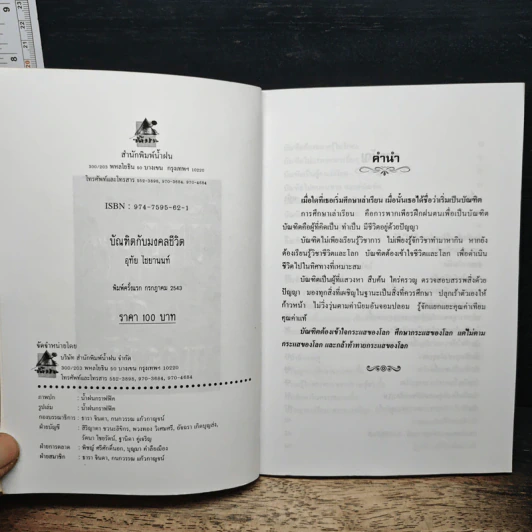 สำนักพิมพ์น้ำฝน
ISBN : 974-7595-62-1
บัณฑิตกับมงคลชีวิต
อุทัย ไชยานนท์
พิมพ์ครั้งแรก กรกฎาคม 2543
ราคา 100 บาท
จัดจำหน่ายโดย
บริษัท สำนักพิมพ์น้ำฝน จำกัด
ภาพปก : น้ำฝนกราฟฟิค
รูปเล่ม : น้ำฝนกราฟฟิค
กองบรรณาธิการ : ธารา จินดา, กนกวรรณ แก้วกาญจน์
ฝ่ายบัญชี :
ฝ่ายการตลาด :
ฝ่ายสมาชิก : ธารา จินดา, กนกวรรณ แก้วกาญจน์
คำนำ
เมื่อใดที่เธอเริ่มศึกษาเล่าเรียน เมื่อนั้นเธอได้ชื่อว่าเริ่มเป็นบัณฑิต
การศึกษาเล่าเรียน คือการพากเพียรฝึกฝนตนเพื่อเป็นบัณฑิต
บัณฑิตคือผู้ที่คิดเป็น ทำเป็น มีชีวิตอยู่ด้วยปัญญา
บัณฑิตไม่เพียงเรียนรู้วิชาการ ไม่เพียงรู้จักวิชาทำมาหากิน หากยัง
ต้องเรียนรู้วิชาชีวิตและโลก บัณฑิตต้องเข้าใจชีวิตและโลก เพื่อดำเนิน
ชีวิตไปในทิศทางที่เหมาะสม
บัณฑิตเป็นผู้ที่แสวงหา สืบค้น ใคร่ครวญ ตรวจสอบสรรพสิ่งด้วย
ปัญญา มองทุกสิ่งที่เผชิญในฐานะเป็นสิ่งที่ควรศึกษา ปลุกเร้าตัวเองให้
ก้าวหน้า ไม่วิ่งวุ่นตามค่านิยมอันจอมปลอม รู้จักแยกแยะคุณค่าเทียม
คุณค่าแท้
บัณฑิตต้องเข้าใจกระแสของโลก ศึกษากระแสของโลก แต่ไม่ตาม
กระแสของโลก และกล้าท้าทายกระแสของโลก